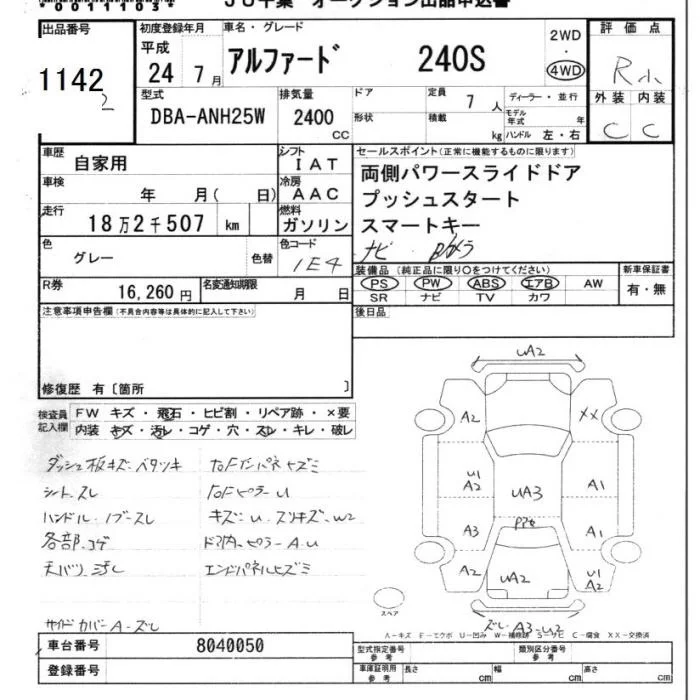 JU千葉 オークション出品申込書
出品番号 初度登録年月 車名・グレード 評価点
1142
2
平成 24年 7月
アルファード 240S
2WD
・
4WD
R
型式
DBA-ANH25W
排気量
2400
CC
ドア
形状
定員 7 人
積載 kg
ディーラー・並行
モデル年式 年
ハンドル 左・右
外装 内装
C C
車歴 自家用
シフト IAT
セールスポイント(正常に機能するものに限ります)
両側パワースライドドア
プッシュスタート
スマートキー
ナビ Bカメラ
車検 年 月( 日)
冷房 AAC
走行 18万2千507 km
燃料 ガソリン
色 グレー 色替
色コード 1E4
R券 16,260円
名変通知期限 月 日
装備品(純正品に限り○をつけてください)
PS PW ABS エアB AW
SR ナビ TV カワ
新車保証書
有・無
注意事項申告欄(不具合内容等は具体的に記入して下さい)
後日品
修復歴 有〔箇所 〕
検査員記入欄
FW キズ・飛石・ヒビ割・リペア跡・×要
内装 キズ・汚レ・コゲ・穴・スレ・キレ・破レ
ダッシュ板キズ・ベタツキ
シート スレ
ハンドル・ノブ スレ
各部 コゲ
天バリ 汚レ
サイドカバー A・ズレ
キズ=U・スリキズ・W2
ドア内・ピラー A・U
エンドパネルヒズミ
UA2
A2
XX
U1
A2
UA3
A1
A3
A1
A2
UA2
U1
A2
ズレ A3・U2
スペア
A-キズ F-エクボ U-凹み W-補修跡 S-サビ C-腐食 XX-交換済
車台番号 8040050
登録番号
型式指定番号 参考
類別区分番号 参考
車庫証明用 参考
長さ cm
幅 cm
高さ cm